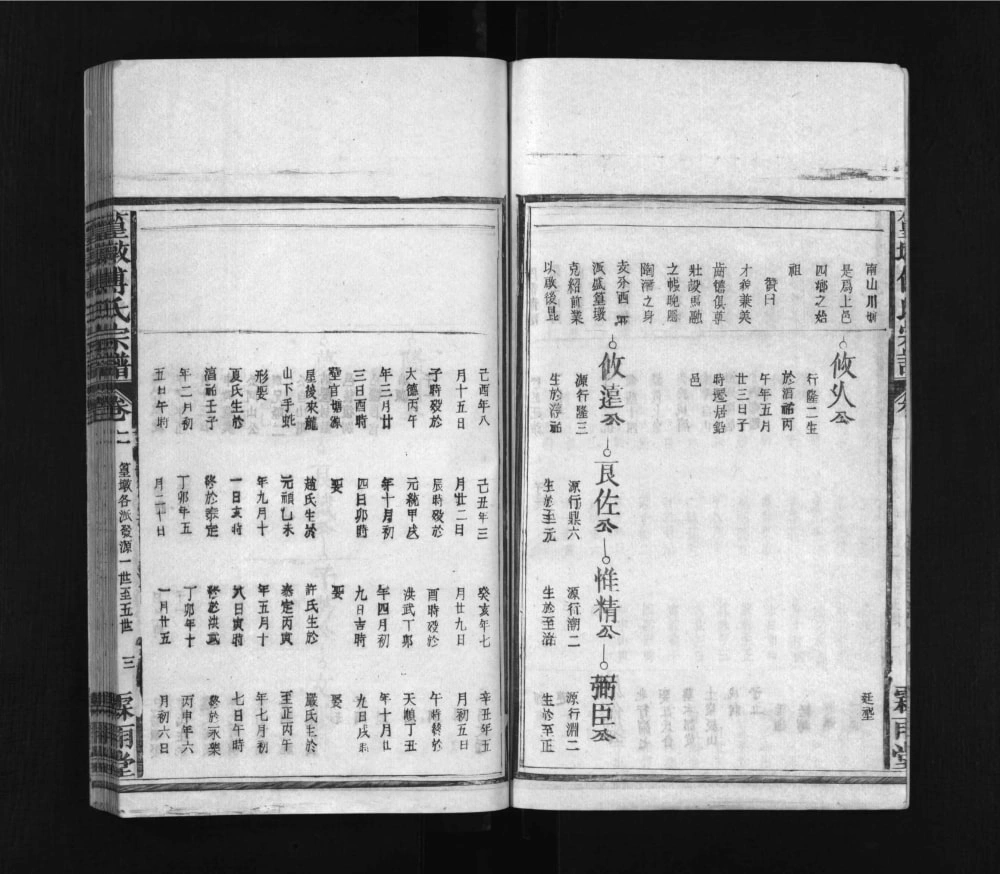 南山川
是爲上邑
四鄉之始
祖
贊曰
才 兼美
齒德俱尊
壯設馬融
之帳晚
陶潛之身
亥分酉
派盛篁墩
克紹前業
以啟後昆
攸 公
行隆二生
於淳祐丙
午年五月
廿三日子
時遷居鉛
邑
攸遠公
源行隆三
生於淳祐
己酉年八
月十五日
子時殁於
大德丙午
年三月廿
三日酉時
塟官塘源
屋後來龍
山下手蛇
形娶
夏氏生於
淳祐壬子
年二月初
五日午時
良佐公
源行鼎六
生於至元
己丑年三
月廿二日
辰時殁於
元統甲戌
年十月初
四日卯時
娶
趙氏生於
元禎乙未
年九月十
一日亥時
終於泰定
丁卯年五
月二十日
惟精公
源行潮二
生於至治
癸亥年七
月廿九日
酉時殁於
洪武丁卯
年四月初
九日吉時
娶
許氏生於
泰定丙寅
年五月十
八日寅時
終於洪武
丁卯年十
一月廿五
弼臣公
源行淵二
生於至正
辛丑年五
月初五日
午時終於
天順丁丑
年十月
九日戌
娶
嚴氏生於
至正丙午
年七月初
七日午時
終於永樂
丙申年六
月初六日
篁墩傅氏宗譜
卷二
篁墩各派發源一世至五世
三
霖雨堂